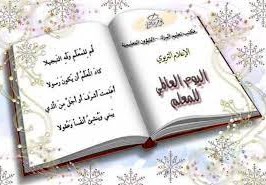 قم للمعلم وفه التبجيلا
كاد المعلم أن يكون رسولا
أعلمت أشرف أو أجل من الذي
يبني وينشئ أنفسا وعقولا
الإعلام التربوي
اليوم العالمي
للمعلم